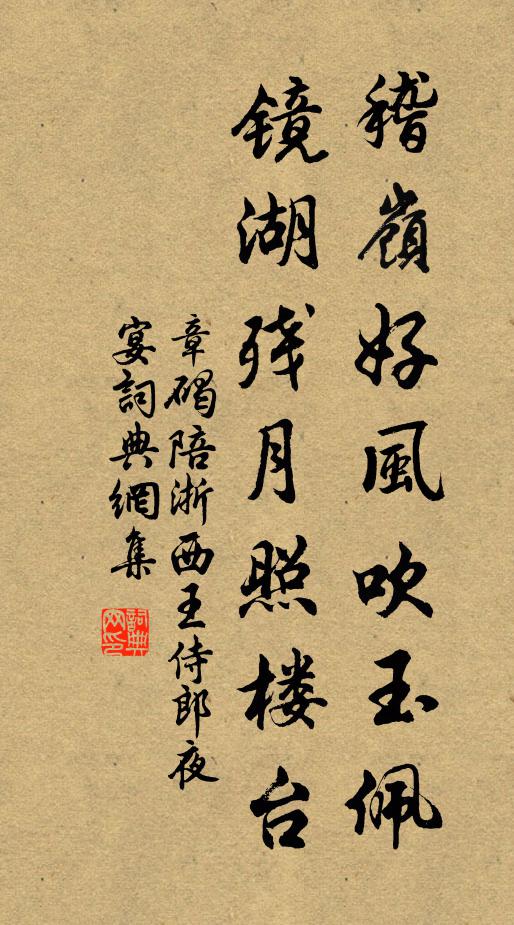 稽嶺好風吹玉佩
鏡湖残月照楼台
章碣陪浙西王侍郎夜
宴詞典網集
詞典网印